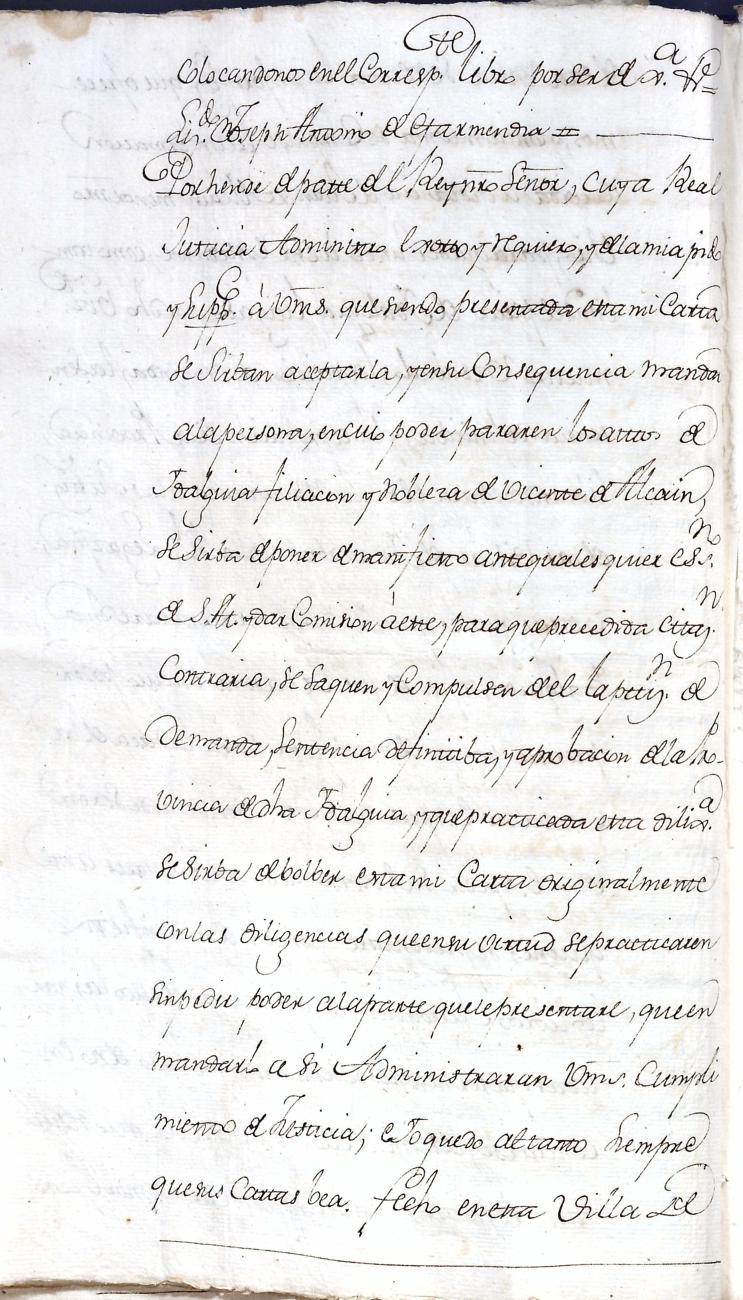 Colocandonos en el Corresp.te libro por ser
Liz.do Dn Joseph Antonio de Garmendia =
Por hende de parte del Rey nro Señor, cuya Real
Justicia Administro exorto y requiero, y de la mia pido
y supp.co á Vms. que siendo presentada esta mi Carta
se sirban aceptarla, y en su Consequencia mandar
ala persona, en cuio poder pararen los autos de
Ydalguia filiacion y Nobleza de Vicente de Alcain,
se sirba de poner de manifiesto ante quales quier ess.no
de S.M. y dar Comision á este, para que precedida citaz.n
Contraria, se saquen y Compulsen de el la pettiz.n de
Demanda, Sentencia definitiba, y aprobacion de la Pro-
vincia de dha Ydalguia, y que practicada esta dilix.a
se sirba debolber esta mi Carta originalmente
con las diligencias que en su virtud se practicaren
sin pedir poder ala parte que le presentare, que en
mandarlo asi Administraran Vms. Cumpli
miento de Justicia; e Yo quedo al tanto siempre
que sus Cartas bea. fecho en esta Villa de